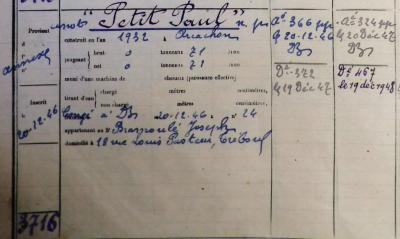 Provient "Petit Paul"
construit en l'an 1932 à Arcachon
jaugeant brut tonneaux 71 /100
net tonneaux 71 /100
muni d'une machine de chevaux (puissance effective)
tirant d'eau chargé mètres centimètres
non chargé mètres centimètres
Inscrit
20.12.46 à Dz 20.12.46 n° 24
appartenant au Sr Joseph
domicilié à 18 rue Louis Pasteur, Tréboul
3716
366
20-12-46
Dz
Dt 372
19 Déc 47
324
20 Déc 47
Dz
Dt 467
le 19 déc 1948